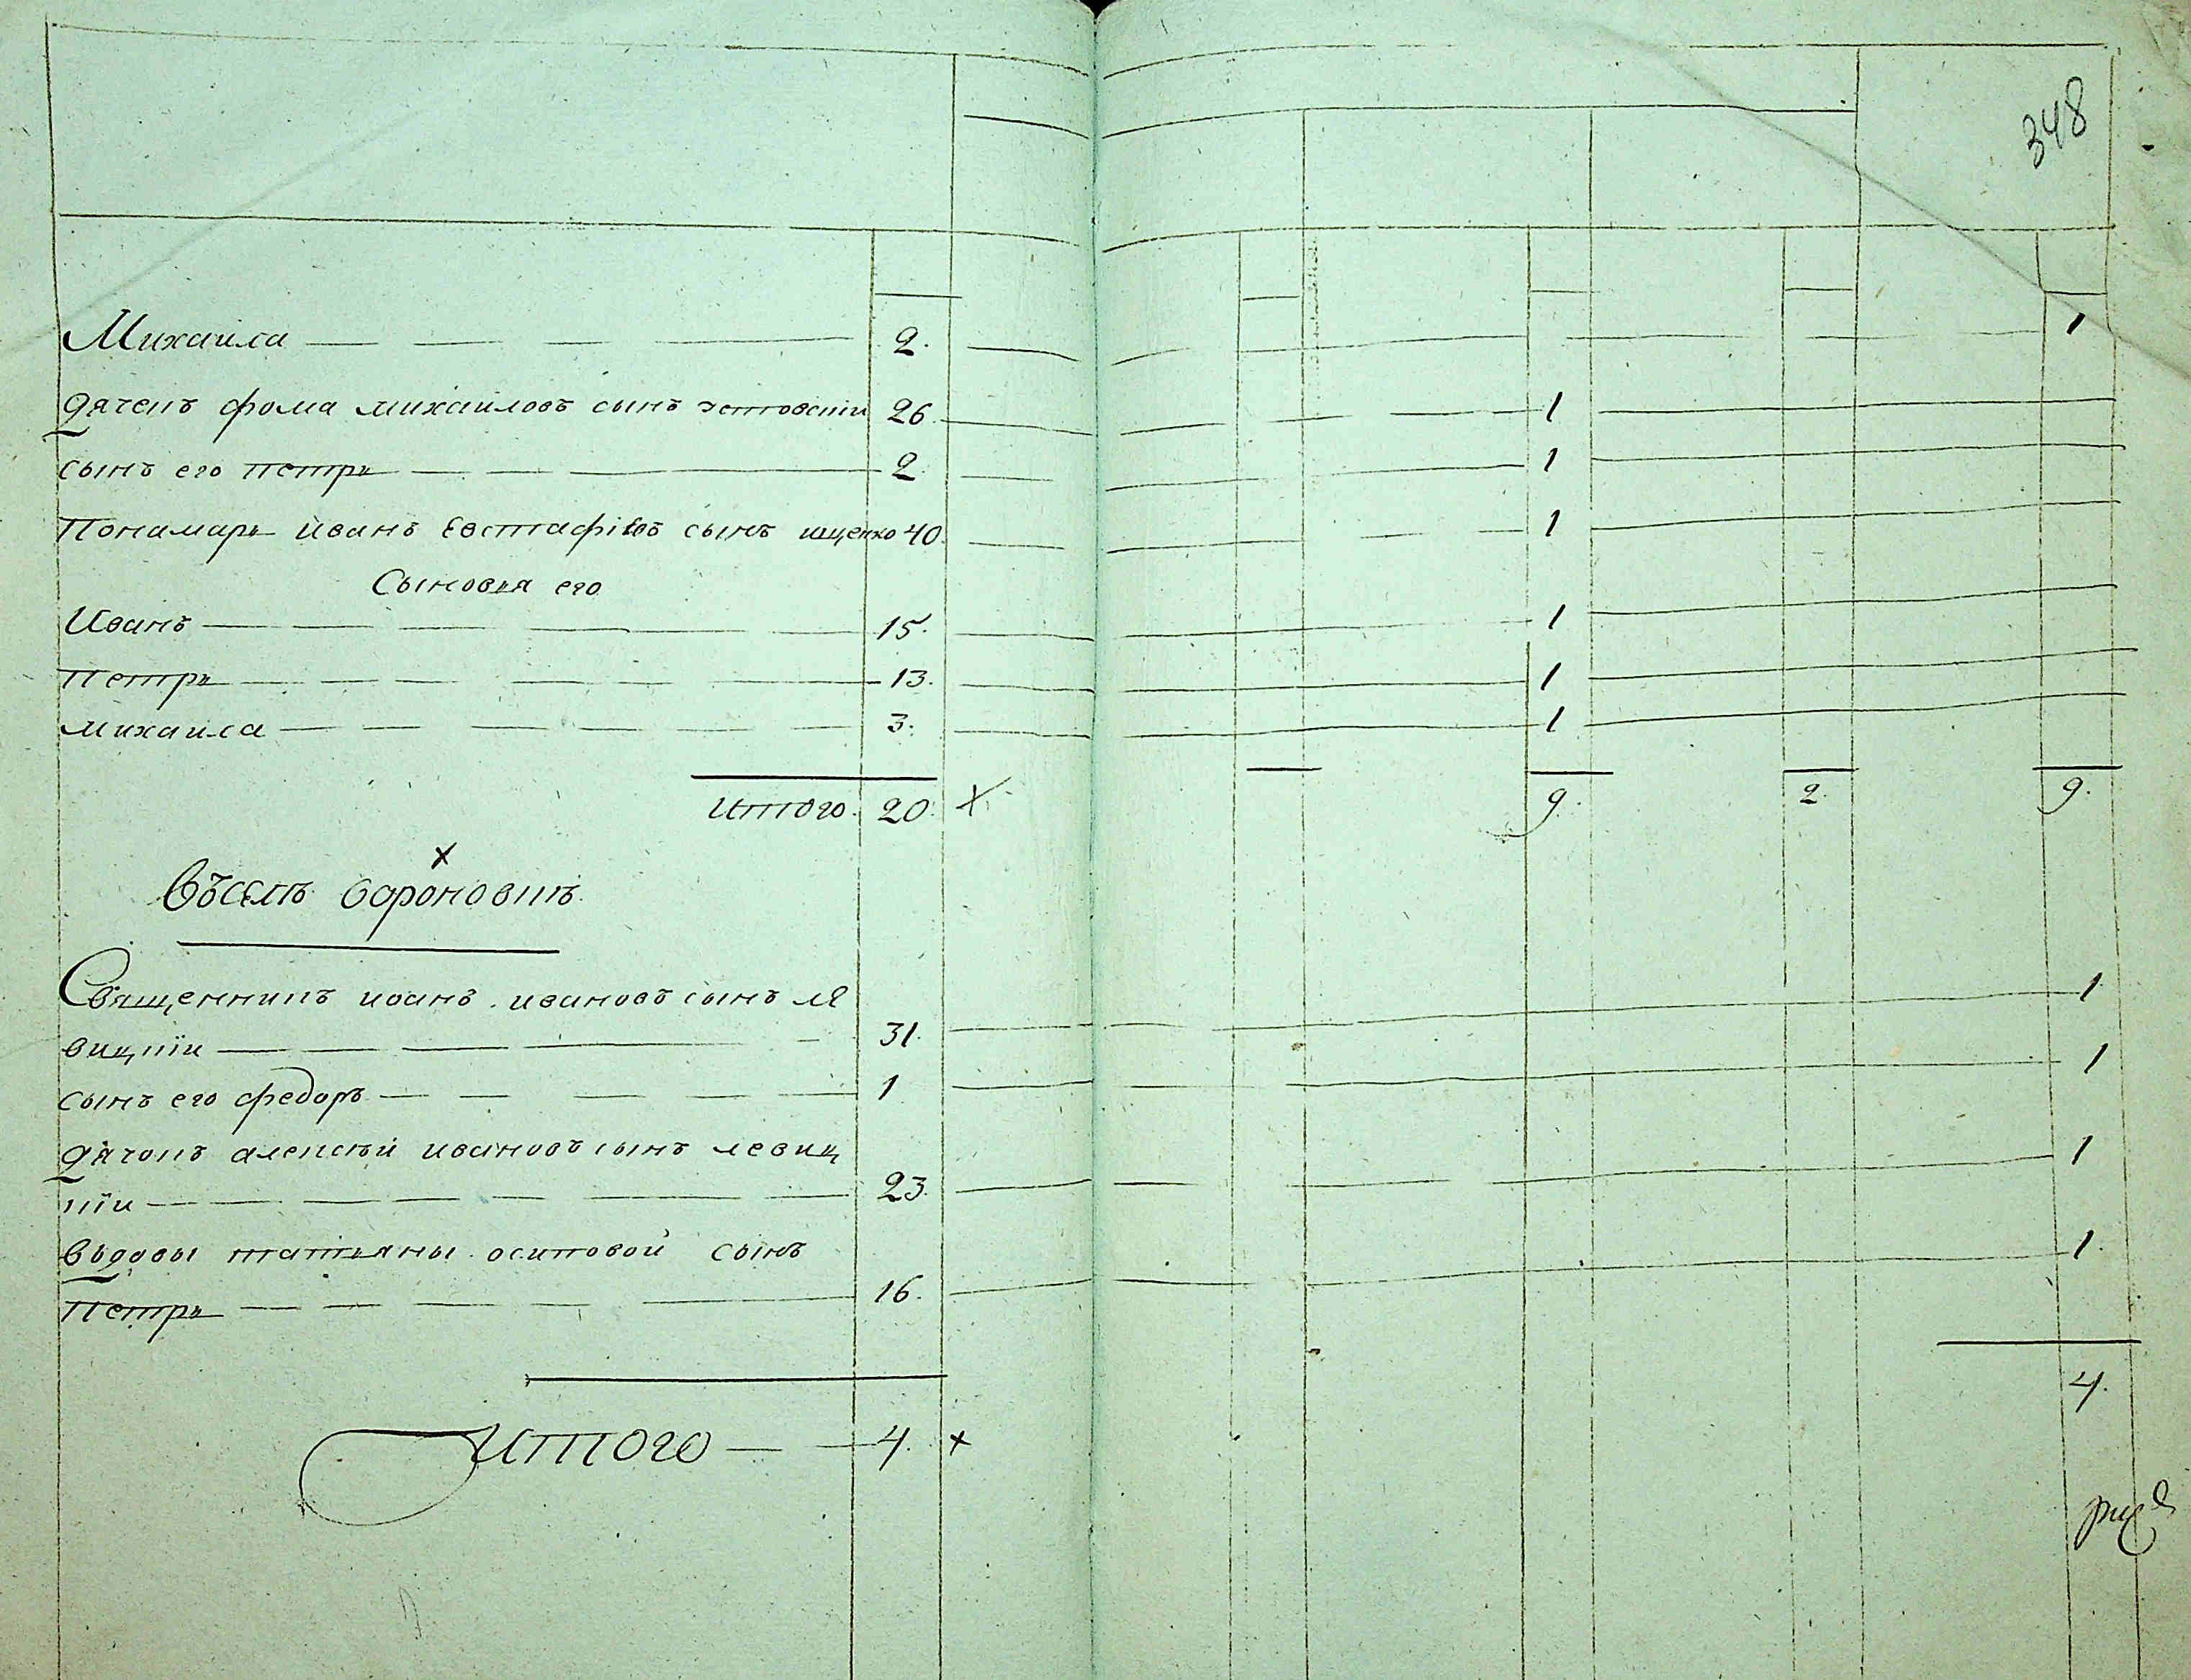 348
Михаила 2. 1
Дячекъ фома михаиловъ сынъ 26. 1
сынъ его петръ 2. 1
Пономарь иванъ Евстафіевъ сынъ ищенко 40. 1
Сыновья его
Иванъ 15. 1
петръ 13. 1
михаила 3. 1
итого. 20. 9. 2. 9.
Въселѣ вороновкѣ
Священникъ иоанъ ивановъ сынъ ле
вицкїи 31. 1
сынъ его федоръ 1 1
Дячокъ алексѣй ивановъ сынъ левиц
кїи 23. 1
Въдовы татьяны осиповой сынъ
петръ 16. 1.
4.
итого 4.